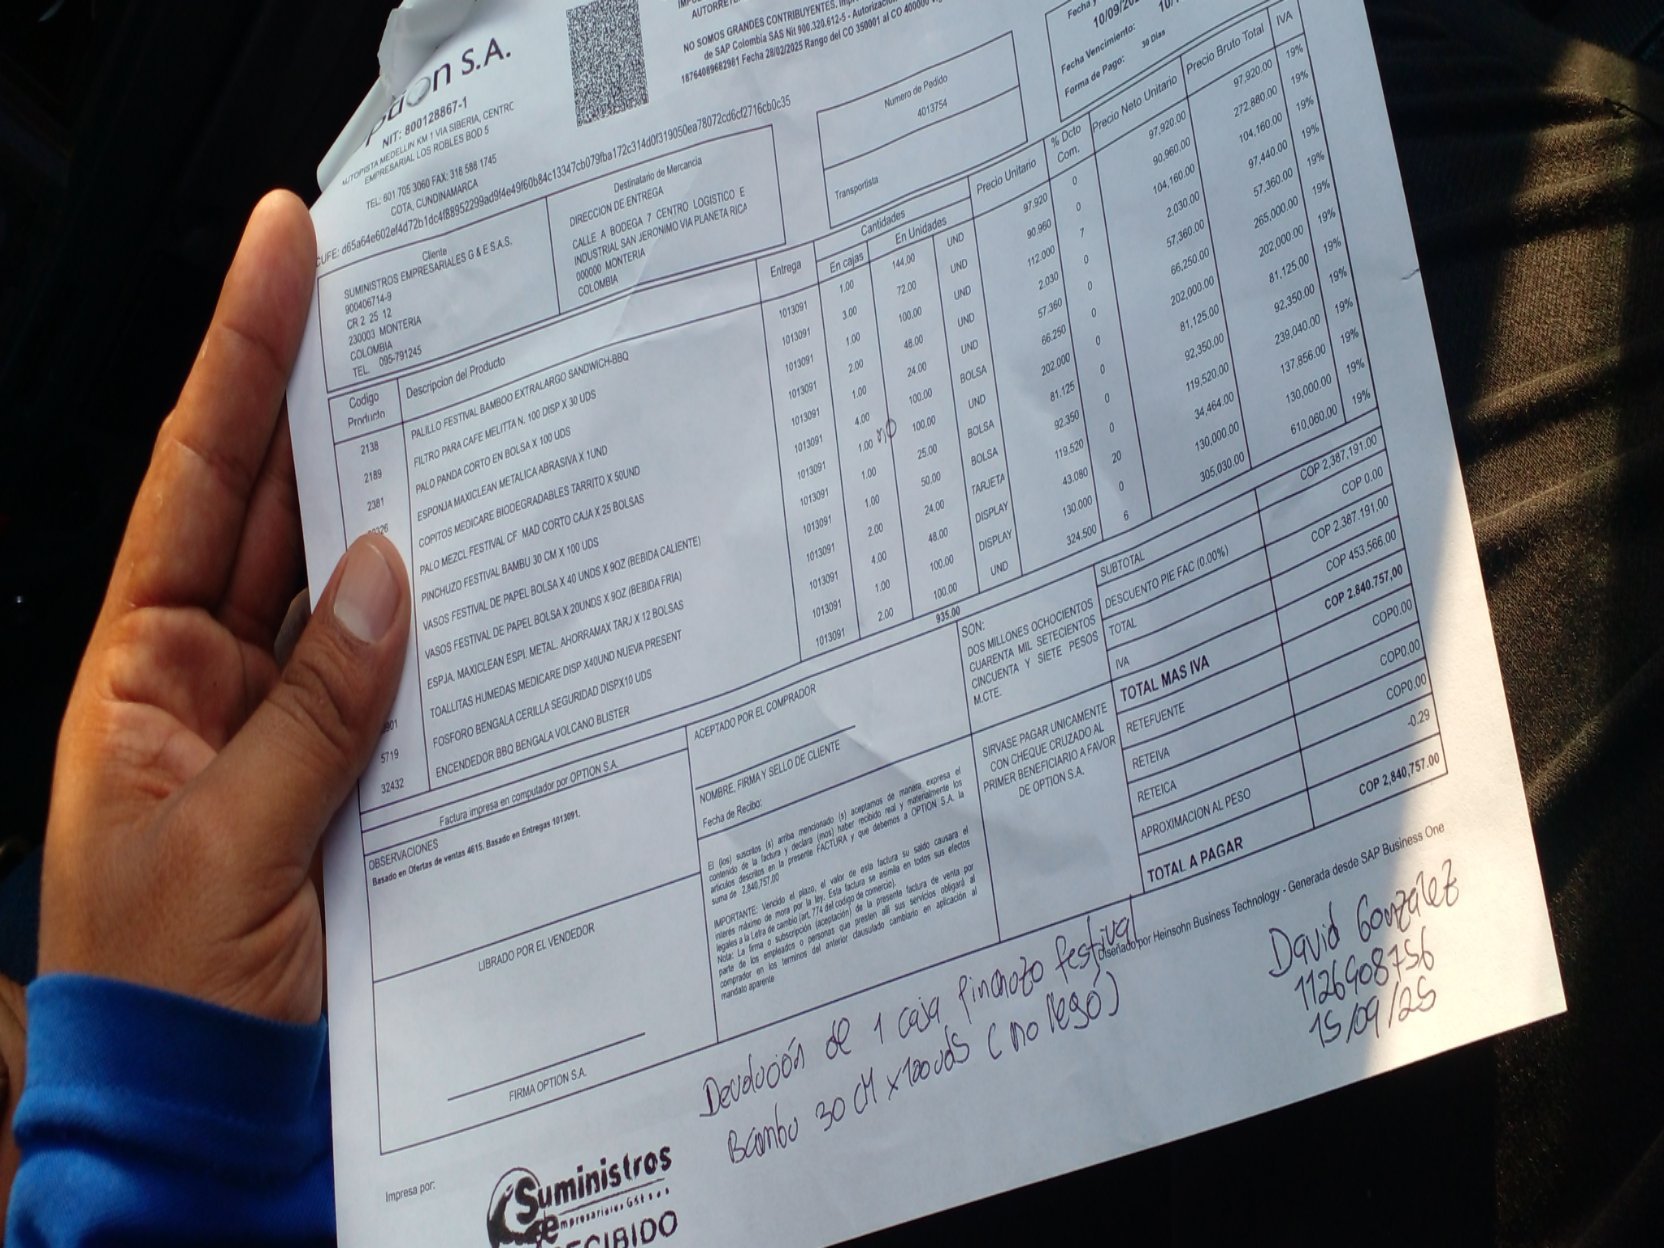 ption S.A.
NIT: 800128867-1
AUTOPISTA MEDELLIN KM 1 VIA SIBERIA, CENTRO
EMPRESARIAL LOS ROBLES BOD 5
TEL: 601 705 3060 FAX: 318 588 1745
COTA, CUNDINAMARCA
AUTORRETE
NO SOMOS GRANDES CONTRIBUYENTES,
de SAP Colombia SAS Nit 900.320.612-5 - Autorización
18764089682981 Fecha 28/02/2025 Rango del CO 350001 al CO 400000
10/09/20
Fecha Vencimiento:
Forma de Pago: 30 Dias
Numero de Pedido
4013754
Transportista
CUFE: d65a64e602ef4d72b1dc4f88952299ad9f4e49f60b84c13347cb079fba172c314d0f319050ea78072cd6cf2716cb0c35
Cliente
SUMINISTROS EMPRESARIALES G & E S.A.S.
900406714-9
CR 2 25 12
230003 MONTERIA
COLOMBIA
TEL. 095-791245
Destinatario de Mercancia
DIRECCION DE ENTREGA
CALLE A BODEGA 7 CENTRO LOGISTICO E
INDUSTRIAL SAN JERONIMO VIA PLANETA RICA
000000 MONTERIA
COLOMBIA
Codigo Producto Descripcion del Producto Entrega Cantidades En cajas En Unidades Precio Unitario % Dcto Com. Precio Neto Unitario Precio Bruto Total IVA
2138 PALILLO FESTIVAL BAMBOO EXTRALARGO SANDWICH-BBQ 1013091 1.00 144.00 UND 97.920 0 97,920.00 97,920.00 19%
2189 FILTRO PARA CAFE MELITTA N. 100 DISP X 30 UDS 1013091 3.00 72.00 UND 90.960 0 90,960.00 272,880.00 19%
2381 PALO PANDA CORTO EN BOLSA X 100 UDS 1013091 1.00 100.00 UND 112.000 7 104,160.00 104,160.00 19%
ESPONJA MAXICLEAN METALICA ABRASIVA X 1UND 1013091 2.00 48.00 UND 2.030 0 2,030.00 97,440.00 19%
COPITOS MEDICARE BIODEGRADABLES TARRITO X 50UND 1013091 1.00 24.00 UND 57.360 0 57,360.00 57,360.00 19%
PALO MEZCL FESTIVAL CF MAD CORTO CAJA X 25 BOLSAS 1013091 4.00 100.00 BOLSA 66.250 0 66,250.00 265,000.00 19%
PINCHUZO FESTIVAL BAMBU 30 CM X 100 UDS 1013091 1.00 no 100.00 UND 202.000 0 202,000.00 202,000.00 19%
VASOS FESTIVAL DE PAPEL BOLSA X 40 UNDS X 9OZ (BEBIDA CALIENTE) 1013091 1.00 25.00 BOLSA 81.125 0 81,125.00 81,125.00 19%
VASOS FESTIVAL DE PAPEL BOLSA X 20UNDS X 9OZ (BEBIDA FRIA) 1013091 1.00 50.00 BOLSA 92.350 0 92,350.00 92,350.00 19%
ESPJA. MAXICLEAN ESPI. METAL. AHORRAMAX TARJ X 12 BOLSAS 1013091 2.00 24.00 TARJETA 119.520 0 119,520.00 239,040.00 19%
901 TOALLITAS HUMEDAS MEDICARE DISP X40UND NUEVA PRESENT 1013091 4.00 48.00 DISPLAY 43.080 20 34,464.00 137,856.00 19%
5719 FOSFORO BENGALA CERILLA SEGURIDAD DISPX10 UDS 1013091 1.00 100.00 DISPLAY 130.000 0 130,000.00 130,000.00 19%
32432 ENCENDEDOR BBQ BENGALA VOLCANO BLISTER 1013091 2.00 100.00 UND 324.500 6 305,030.00 610,060.00 19%
935.00
Factura impresa en computador por OPTION S.A.
OBSERVACIONES
Basado en Ofertas de ventas 4615. Basado en Entregas 1013091.
LIBRADO POR EL VENDEDOR
FIRMA OPTION S.A.
ACEPTADO POR EL COMPRADOR
NOMBRE, FIRMA Y SELLO DE CLIENTE
Fecha de Recibo:
El (los) suscritos (s) arriba mencionado (s) aceptamos de manera expresa el
contenido de la factura y declara (mos) haber recibido real y materialmente los
articulos descritos en la presente FACTURA y que debemos a OPTION S.A. la
suma de 2,840,757.00
IMPORTANTE: Vencido el plazo, el valor de esta factura su saldo causara el
interés máximo de mora por la ley. Esta factura se asimila en todos sus efectos
legales a la Letra de cambio (art. 774 del codigo de comercio).
Nota: La firma o subscripción (aceptación) de la presente factura de venta por
parte de los empleados o personas que presten allí sus servicios obligará al
comprador en los terminos del anterior clausulado cambiario en aplicación al
mandato aparente.
SON:
DOS MILLONES OCHOCIENTOS
CUARENTA MIL SETECIENTOS
CINCUENTA Y SIETE PESOS
M.CTE.
SIRVASE PAGAR UNICAMENTE
CON CHEQUE CRUZADO AL
PRIMER BENEFICIARIO A FAVOR
DE OPTION S.A.
SUBTOTAL COP 2,387,191.00
DESCUENTO PIE FAC (0.00%) COP 0.00
TOTAL COP 2,387,191.00
IVA COP 453,566.00
TOTAL MAS IVA COP 2,840,757,00
RETEFUENTE COP0.00
RETEIVA COP0.00
RETEICA COP0.00
APROXIMACION AL PESO -0.29
TOTAL A PAGAR COP 2,840,757.00
Diseñado por Heinsohn Business Technology - Generada desde SAP Business One
Devolución de 1 caja Pinchozo festival
Bambu 30 CM x 100 uds (no llegó)
David Gonzalez
1126908756
15/09/25
Impresa por:
Suministros
Empresariales
RECIBIDO